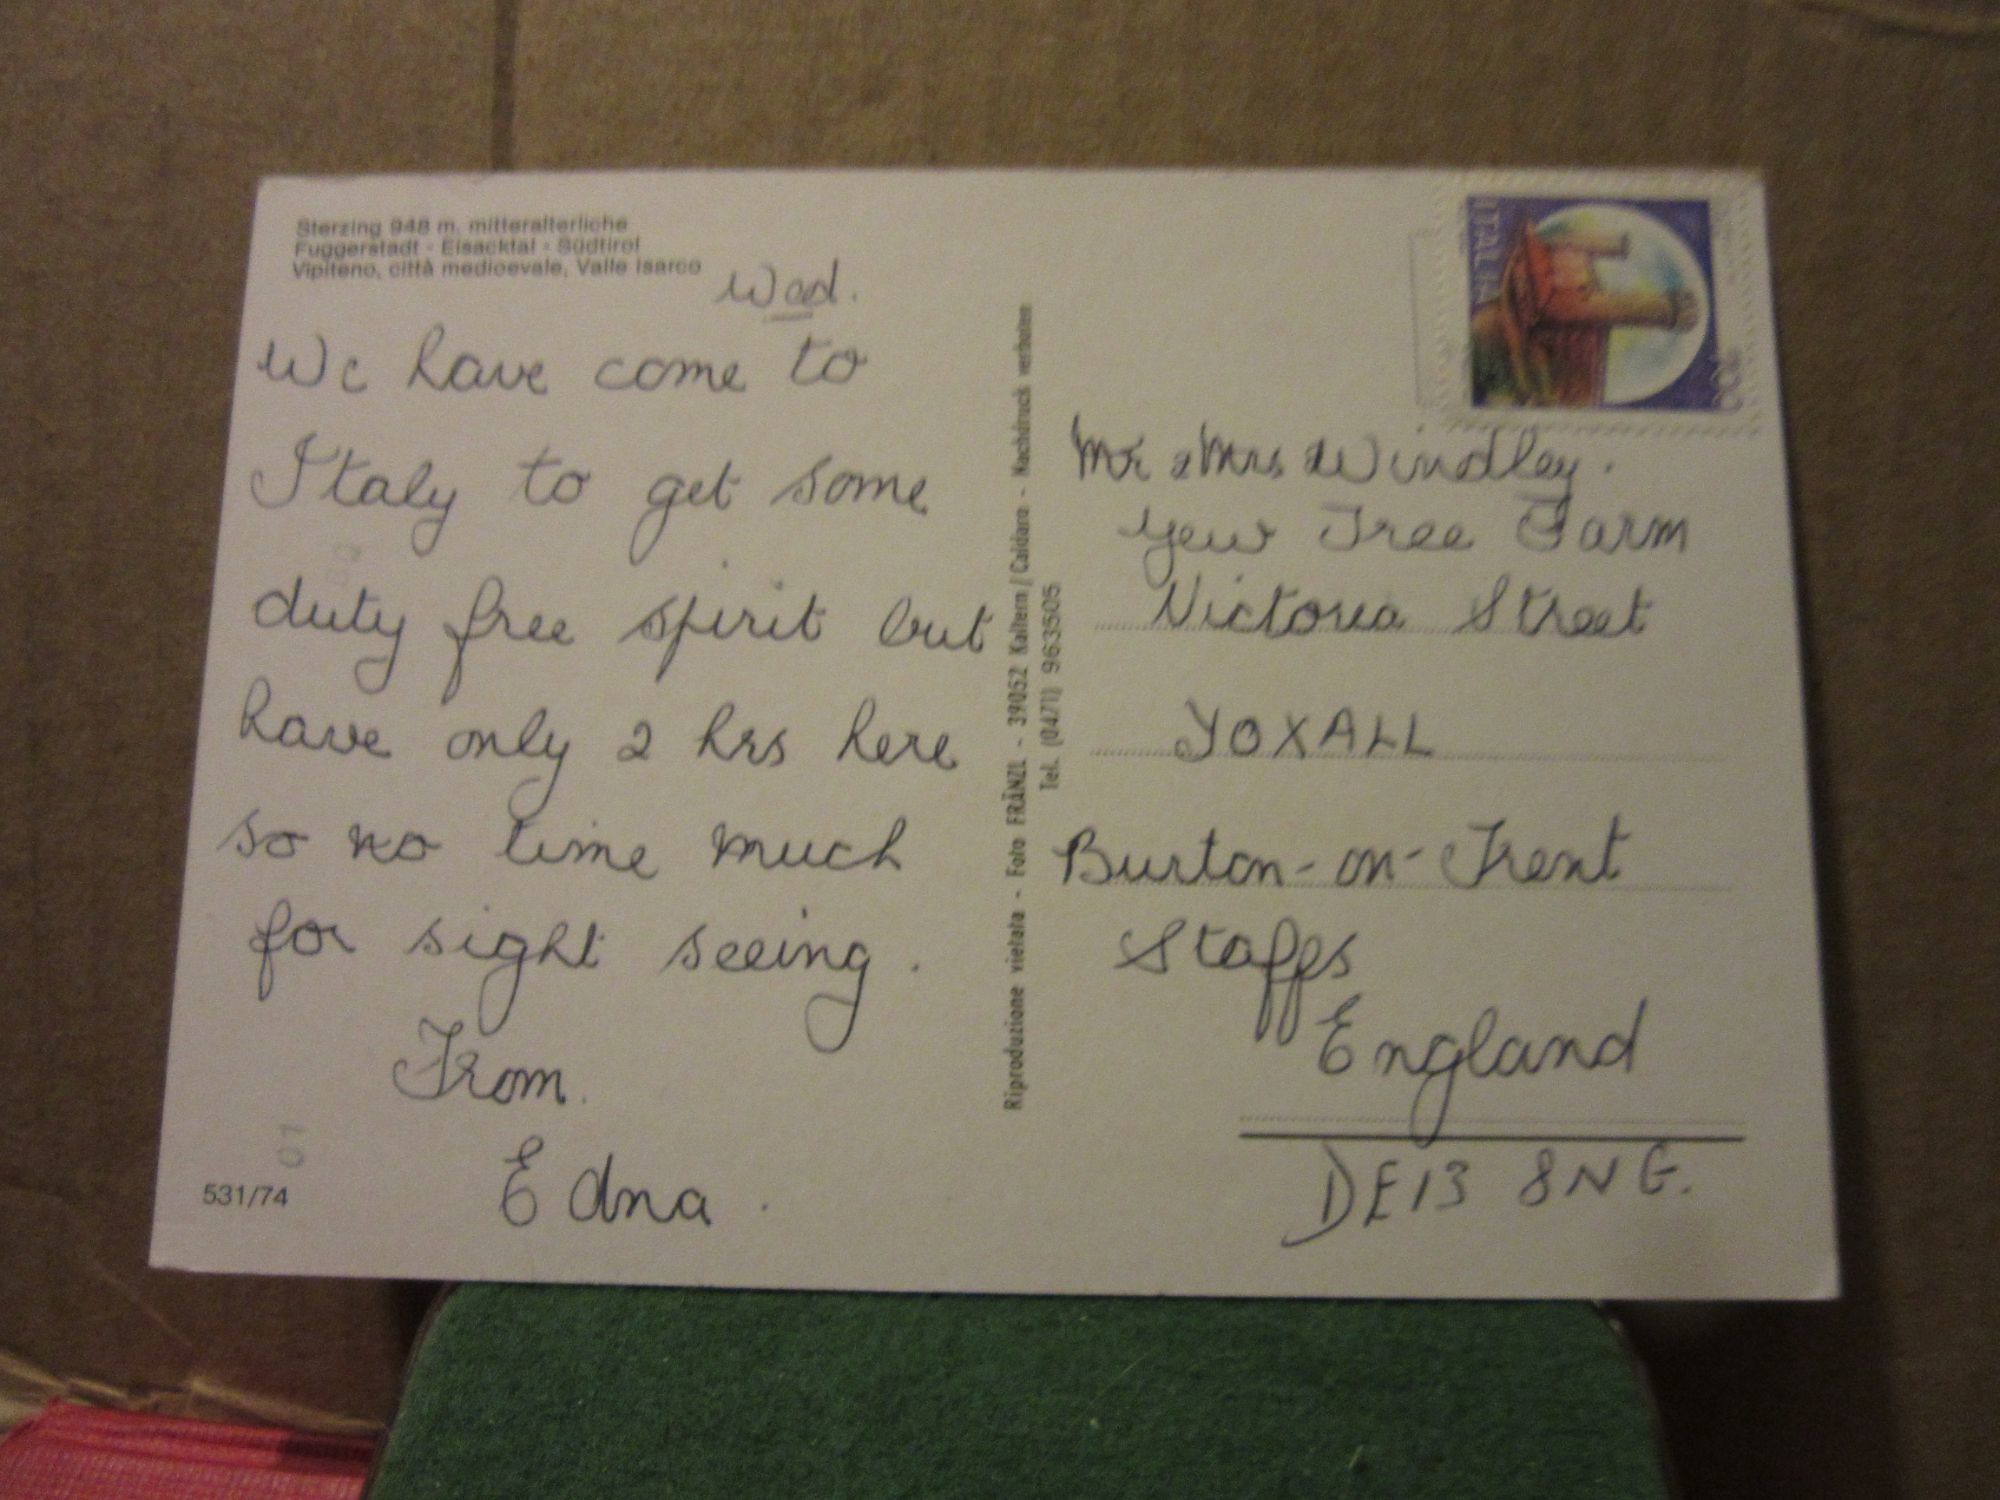 Sterzing 948 m. mitteralterliche
Fuggerstadt - Eisacktal - Südtirol
Vipiteno, città medioevale, Valle Isarco
Wed.
We have come to
Italy to get some
duty free spirit but
have only 2 hrs here
so no time much
for sight seeing.
From.
Edna.
01
531/74
Riproduzione vietata - Foto FRÄNZL - 39052 Kaltern/Caldaro - Nachdruck verboten
Tel. (0471) 963505
ITALIA
Mr & Mrs Windley.
Yew Tree Farm
Victoria Street
YOXALL
Burton-on-Trent
Staffs
England
DE13 8NG.